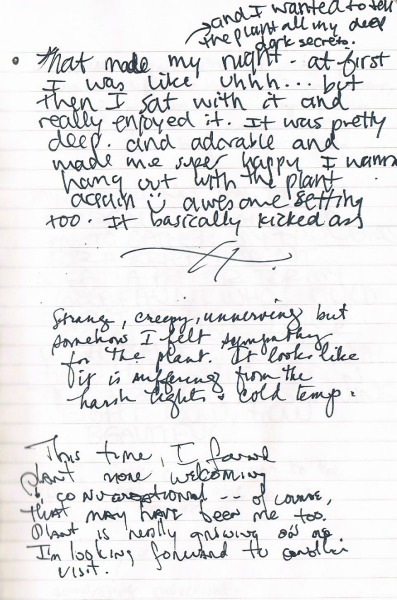 and I wanted to tell
the plant all my deep
dark secrets.
That made my night - at first
I was like uhhh... but
then I sat with it and
really enjoyed it. It was pretty
deep. and adorable and
made me super happy I wanna
hang out with the plant
again awesome setting
too. It basically kicked ass
Strange, creepy, unnerving but
somehow I felt sympathy
for the plant. It looks like
it is suffering from the
harsh lights & cold temp.
This time, I found
plant more welcoming
& conversational -- of course,
that may have been me too.
Plant is really growing on me.
I'm looking forward to another
visit.